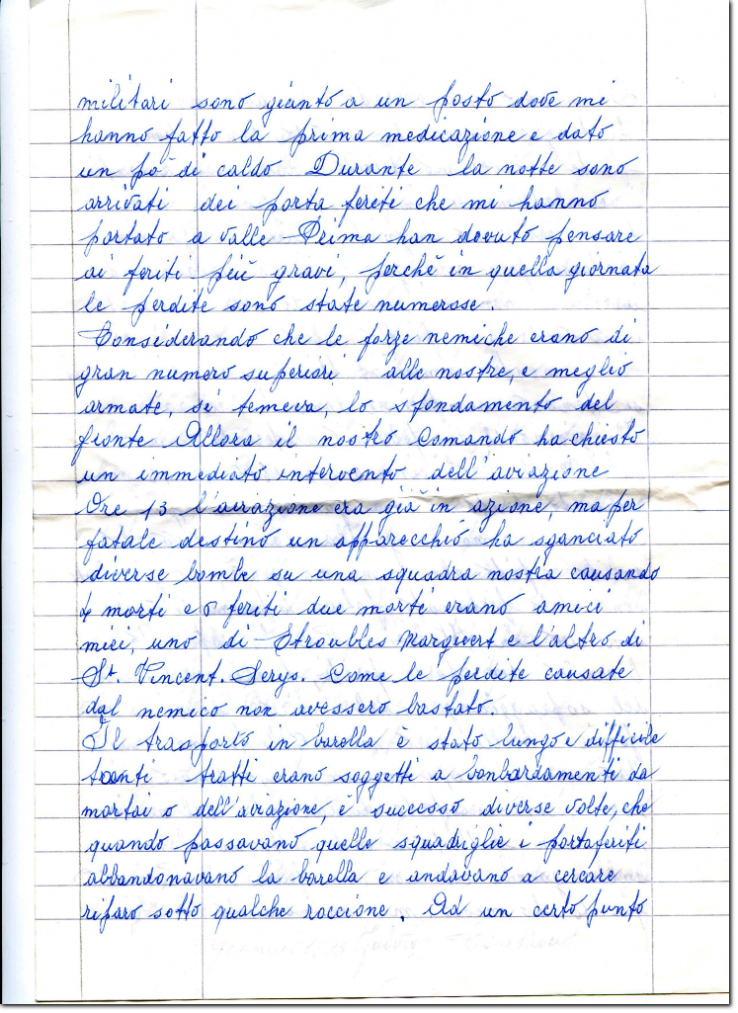 militari sono giunto a un posto dove mi
hanno fatto la prima medicazione e dato
un pò di caldo Durante la notte sono
arrivati dei porta feriti che mi hanno
portato a valle Prima han dovuto pensare
ai feriti più gravi, perchè in quella giornata
le perdite sono state numerose.
Considerando che le forze nemiche erano di
gran numero superiori alle nostre, e meglio
armate, si temeva, lo sfondamento del
fronte Allora il nostro Comando ha chiesto
un immediato intervento dell'aviazione
Ore 13 l'aviazione era già in azione, ma per
fatale destino un apparecchio ha sganciato
diverse bombe su una squadra nostra causando
4 morti e 6 feriti due morti erano amici
miei, uno di Etroubles Marguert e l'altro di
St. Vincent. Serys. Come le perdite causate
dal nemico non avessero bastato.
Il trasporto in barella è stato lungo e difficile
tanti tratti erano soggetti a bonbardamenti da
mortai o dell'aviazione, è successo diverse volte, che
quando passavano quelle squadriglie i portaferiti
abbandonavano la barella e andavano a cercare
riparo sotto qualche roccione. Ad un certo punto